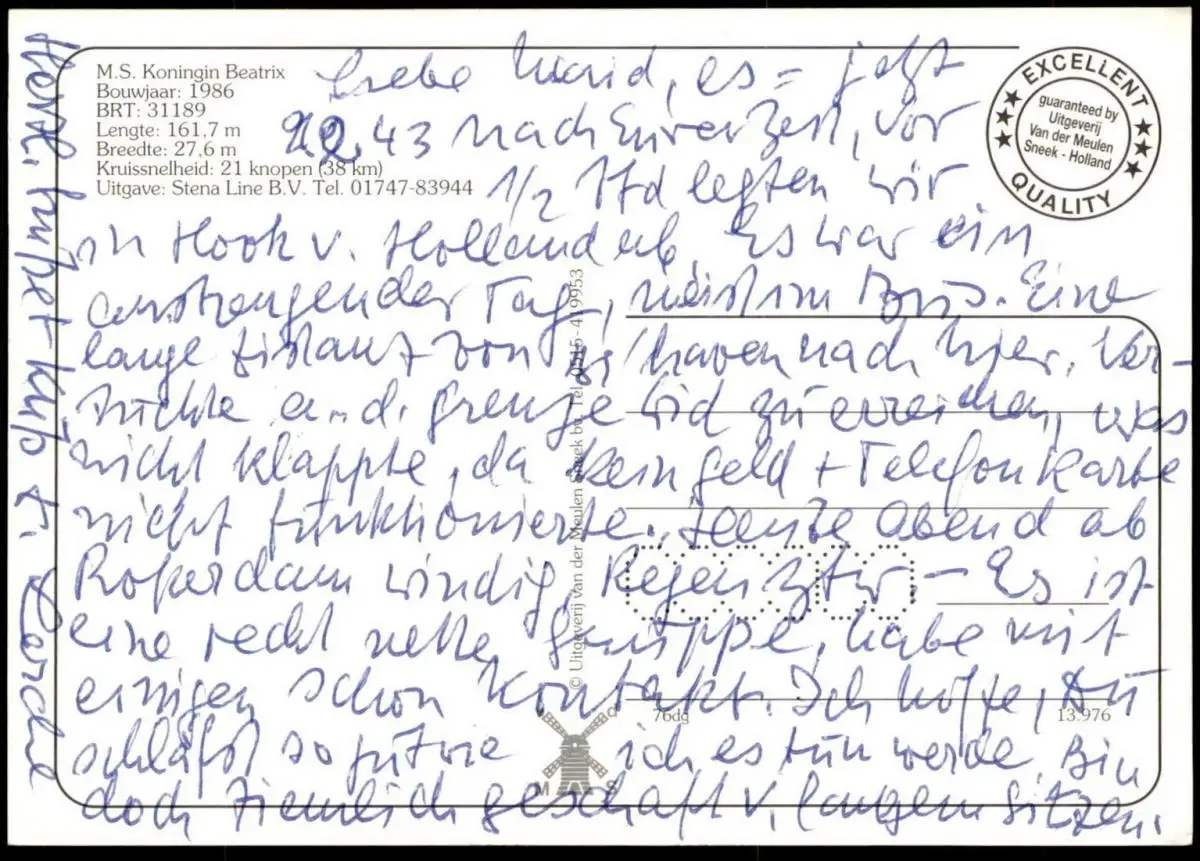 M.S. Koningin Beatrix
Bouwjaar: 1986
BRT: 31189
Lengte: 161,7 m
Breedte: 27,6 m
Kruissnelheid: 21 knopen (38 km)
Uitgave: Stena Line B.V. Tel. 01747-83944
EXCELLENT
guaranteed by
Uitgeverij
Van der Meulen
Sneek - Holland
QUALITY
Liebe, es = jetzt
22.43 nach Eurer Zeit, vor
1/2 Std legten wir
in Hook v. Holland ab. Es war ein
anstrengender Tag, meist im Bus. Eine
lange Distanz von haven nach hier. Ver-
suchte a. d. Grenze Dich zu erreichen, was
nicht klappte, da kein Geld + Telefonkarte
nicht funktionierte. Heute Abend ab
Roterdam windig, Regen - Es ist
eine recht nette Gruppe, habe mit
einigen schon Kontakt. Ich hoffe, Du
schläfst so gut wie ich es tun werde. Bin
doch ziemlich geschafft v. langem Sitzen.
Herzl. Gruß +
© Uitgeverij van der Meulen Sneek bv. Tel.
76dg
13.976
M S